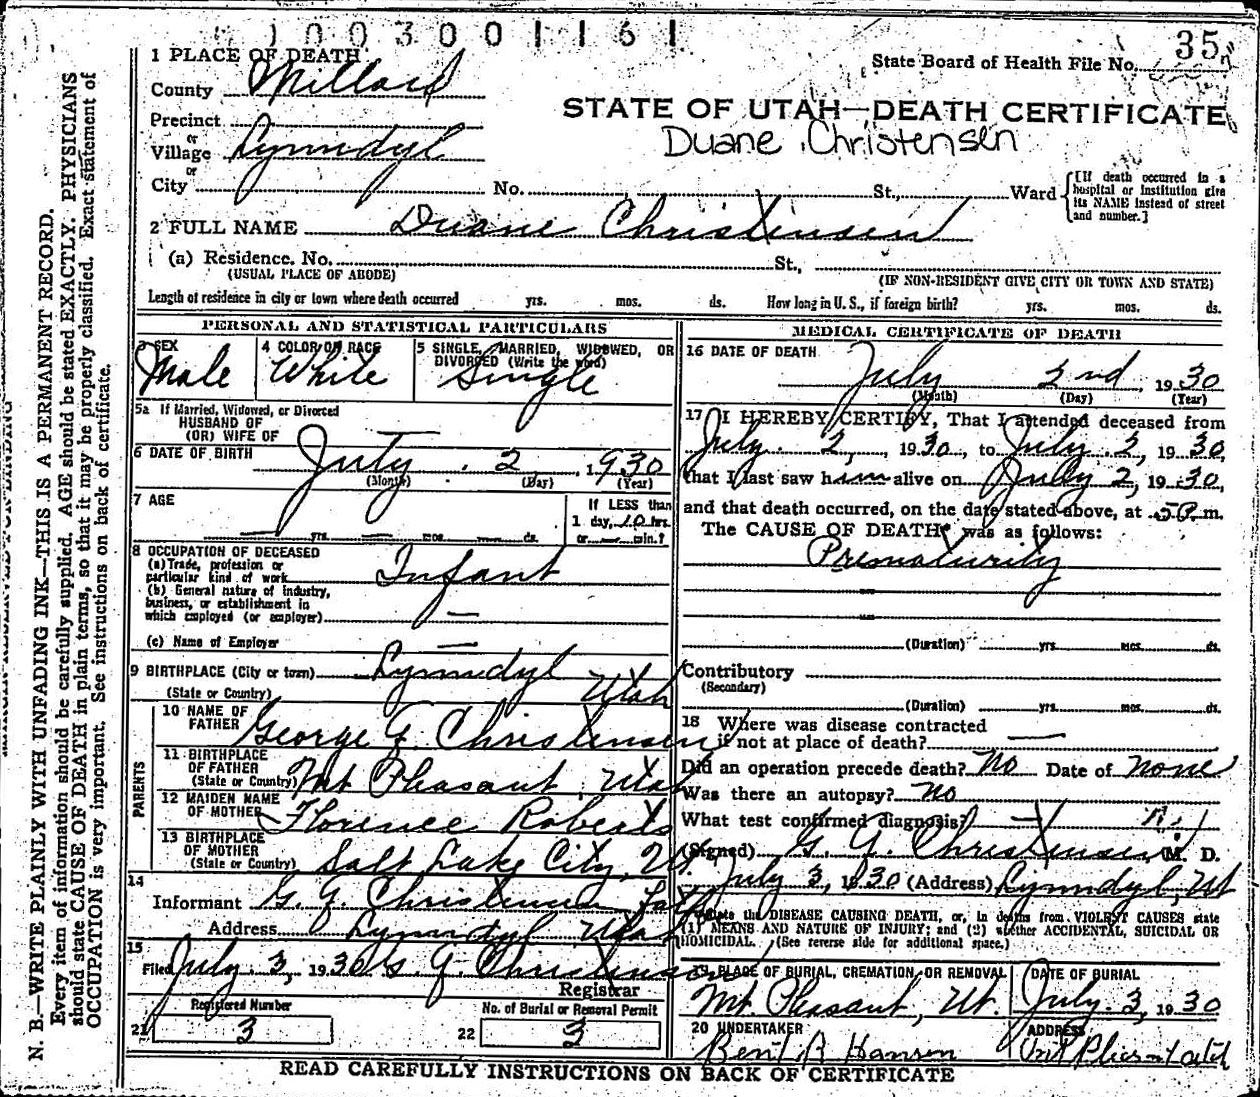 1003001161
35
1 PLACE OF DEATH
State Board of Health File No.
County Millard
STATE OF UTAH—DEATH CERTIFICATE
Precinct
or
Duane Christensen
Village Lynndyl
or
City No. St., Ward
[If death occurred in a hospital or institution give its NAME instead of street and number.]
2 FULL NAME Duane Christensen
(a) Residence. No. St.,
(USUAL PLACE OF ABODE) (IF NON-RESIDENT GIVE CITY OR TOWN AND STATE)
Length of residence in city or town where death occurred yrs. mos. ds. How long in U. S., if foreign birth? yrs. mos. ds.
PERSONAL AND STATISTICAL PARTICULARS
3 SEX
Male
4 COLOR OR RACE
White
5 SINGLE, MARRIED, WIDOWED, OR DIVORCED (Write the word)
Single
5a If Married, Widowed, or Divorced
HUSBAND OF
(OR) WIFE OF —
6 DATE OF BIRTH July 2, 1930
(Month) (Day) (Year)
7 AGE
— yrs. — mos. — ds.
If LESS than
1 day, 10 hrs.
or — min.?
8 OCCUPATION OF DECEASED
(a) Trade, profession or
particular kind of work Infant
(b) General nature of industry,
business, or establishment in
which employed (or employer) —
(c) Name of Employer —
9 BIRTHPLACE (City or town) Lynndyl
(State or Country) Utah
PARENTS
10 NAME OF
FATHER George G. Christensen
11 BIRTHPLACE
OF FATHER
(State or Country) Mt Pleasant, Utah
12 MAIDEN NAME
OF MOTHER Florence Roberts
13 BIRTHPLACE
OF MOTHER
(State or Country) Salt Lake City, Ut.
14
Informant G. G. Christensen Father
Address Lynndyl Utah
15
Filed July 3, 1930 G. G. Christensen
Registrar
Registered Number
21 3
No. of Burial or Removal Permit
22 3
MEDICAL CERTIFICATE OF DEATH
16 DATE OF DEATH
July 2nd, 1930
(Month) (Day) (Year)
17 I HEREBY CERTIFY, That I attended deceased from
July 2, 1930, to July 2, 1930,
that I last saw him alive on July 2, 1930,
and that death occurred, on the date stated above, at 5P. m.
The CAUSE OF DEATH was as follows:
Prematurity
(Duration) yrs. mos. ds.
Contributory
(Secondary)
(Duration) yrs. mos. ds.
18 Where was disease contracted
if not at place of death? —
Did an operation precede death? No Date of none
Was there an autopsy? No
What test confirmed diagnosis? —
(Signed) G. G. Christensen M. D.
July 3, 1930 (Address) Lynndyl, Ut
State the DISEASE CAUSING DEATH, or, in deaths from VIOLENT CAUSES state
(1) MEANS AND NATURE OF INJURY; and (2) whether ACCIDENTAL, SUICIDAL OR
HOMICIDAL. (See reverse side for additional space.)
19 PLACE OF BURIAL, CREMATION, OR REMOVAL
Mt. Pleasant, Ut.
DATE OF BURIAL
July 3, 1930
20 UNDERTAKER
Bent R Hansen
ADDRESS
READ CAREFULLY INSTRUCTIONS ON BACK OF CERTIFICATE
N. B.—WRITE PLAINLY WITH UNFADING INK—THIS IS A PERMANENT RECORD.
Every item of information should be carefully supplied. AGE should be stated EXACTLY. PHYSICIANS
should state CAUSE OF DEATH in plain terms, so that it may be properly classified. Exact statement of
OCCUPATION is very important. See instructions on back of certificate.